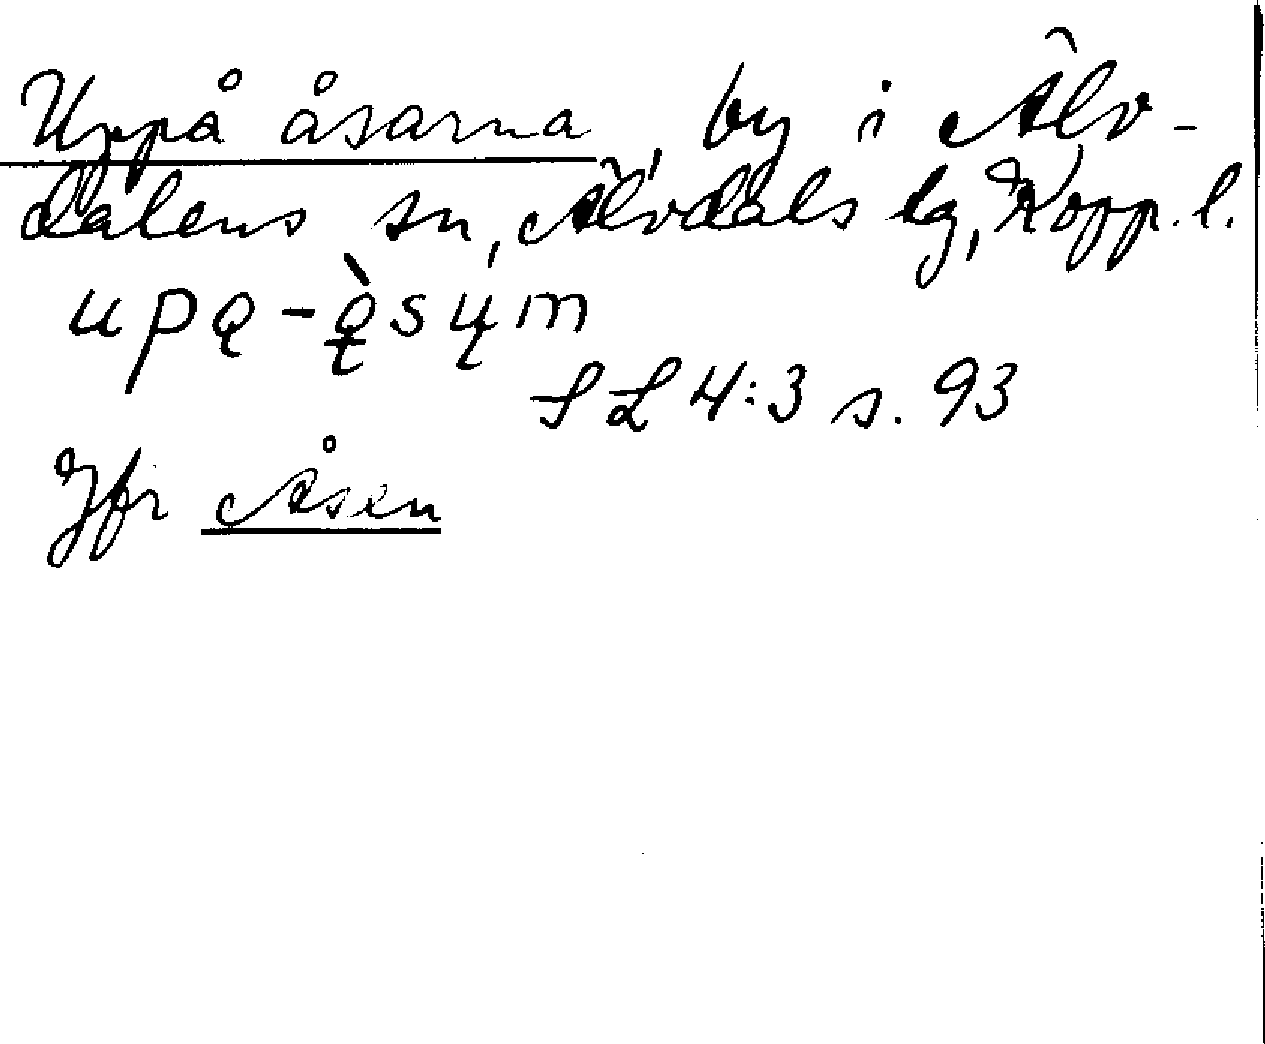 Uppå åsarna, by i Älv-
dalens sn, Älvdals tg, Kopp. l.
SL 4:3 s. 93
Jfr Åsen